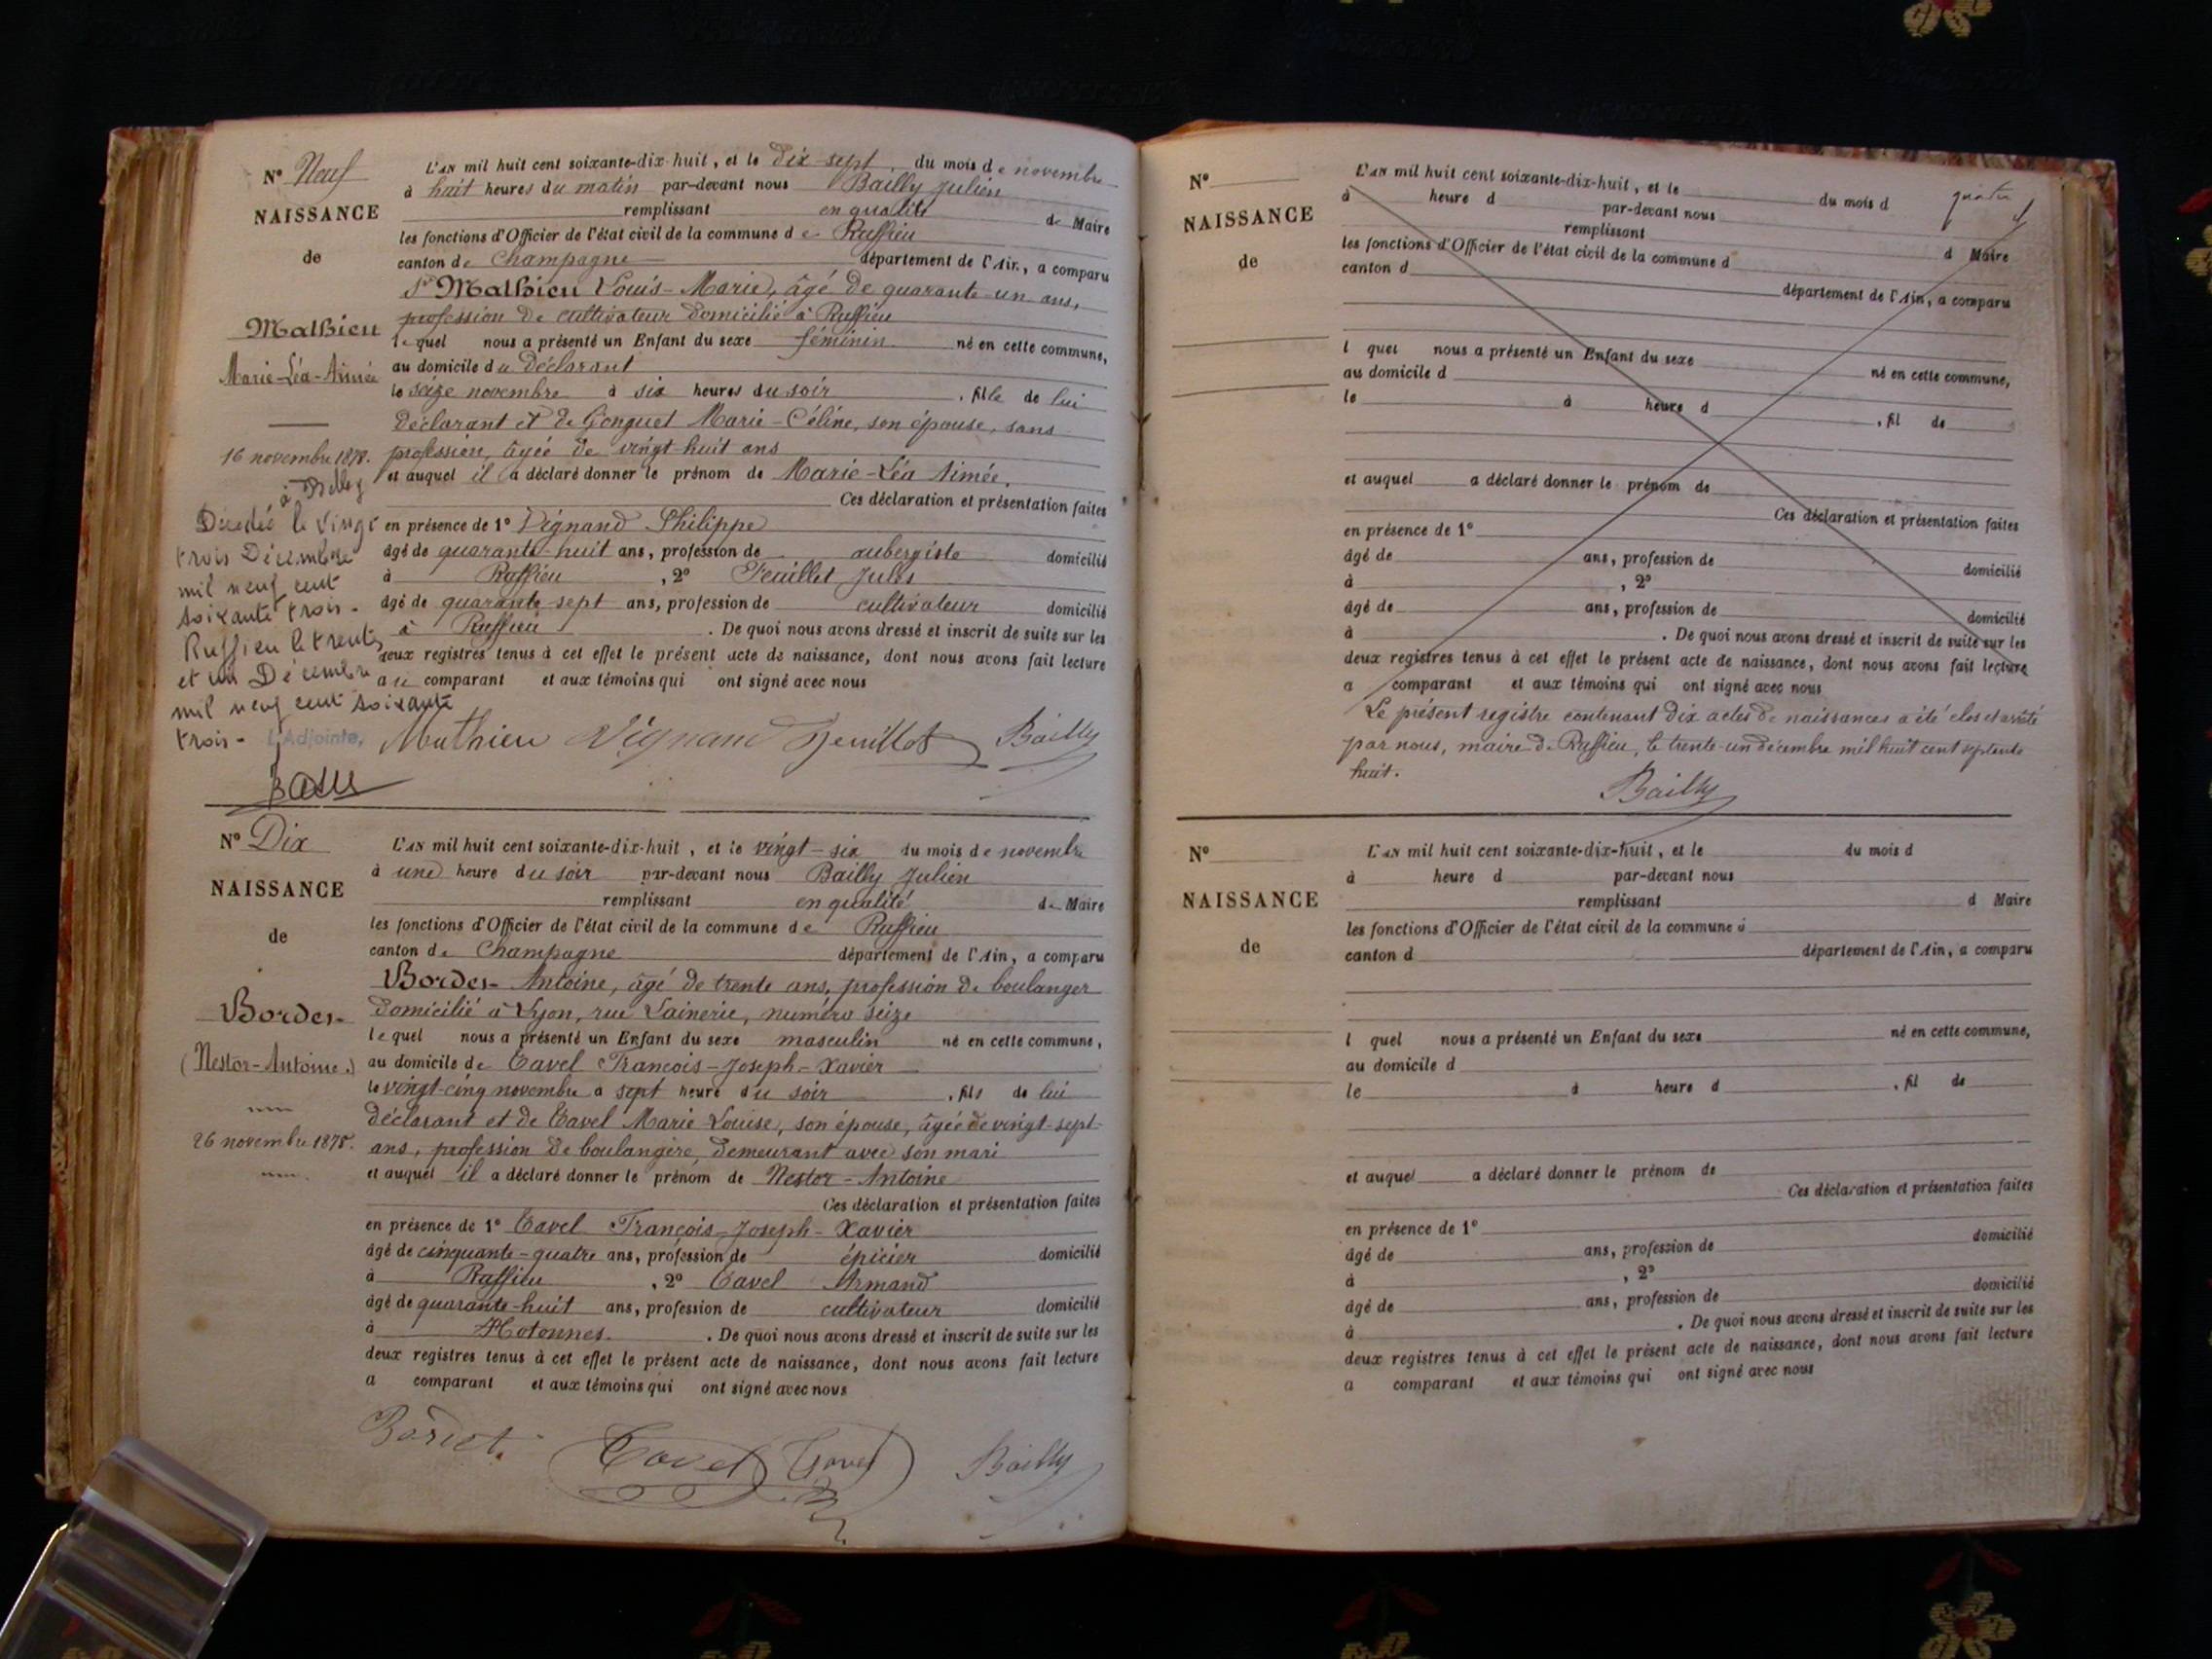 N° Neuf
NAISSANCE
de
Mathieu
Marie-Léa-Aimée
16 novembre 1878.
L'AN mil huit cent soixante-dix-huit, et le dix-sept du mois de novembre
à huit heures du matin par-devant nous Bailly Julien
remplissant en qualité de Maire
les fonctions d'Officier de l'état civil de la commune de Ruffieu
canton de Champagne département de l'Ain, a comparu
Sr Mathieu Louis-Marie, âgé de quarante-un ans,
profession de cultivateur domicilié à Ruffieu
lequel nous a présenté un Enfant du sexe féminin né en cette commune,
au domicile du déclarant
le seize novembre à six heures du soir, fille de lui
déclarant et de Gonguet Marie-Céline, son épouse, sans
profession, âgée de vingt-huit ans
et auquel il a déclaré donner le prénom de Marie-Léa Aimée.
Ces déclaration et présentation faites
en présence de 1° Vignand Philippe
âgé de quarante-huit ans, profession de aubergiste domicilié
à Ruffieu, 2° Feuillet Jules
âgé de quarante-sept ans, profession de cultivateur domicilié
à Ruffieu. De quoi nous avons dressé et inscrit de suite sur les
deux registres tenus à cet effet le présent acte de naissance, dont nous avons fait lecture
au comparant et aux témoins qui ont signé avec nous
Mathieu Vignand Feuillet Bailly
à Belley
Décédée le vingt
trois Décembre
mil neuf cent
soixante trois -
Ruffieu le trente
et un Décembre
mil neuf cent soixante
trois - L'Adjointe,
N° Dix
NAISSANCE
de
Bordes
(Nestor-Antoine.)
26 novembre 1878.
L'AN mil huit cent soixante-dix-huit, et le vingt-six du mois de novembre
à une heure du soir par-devant nous Bailly Julien
remplissant en qualité de Maire
les fonctions d'Officier de l'état civil de la commune de Ruffieu
canton de Champagne département de l'Ain, a comparu
Bordes Antoine, âgé de trente ans, profession de boulanger
domicilié à Lyon, rue Lainerie, numéro seize
lequel nous a présenté un Enfant du sexe masculin né en cette commune,
au domicile de Cavel François-Joseph-Xavier
le vingt-cinq novembre à sept heure du soir, fils de lui
déclarant et de Cavel Marie-Louise, son épouse, âgée de vingt-sept
ans, profession de boulangère, demeurant avec son mari
et auquel il a déclaré donner le prénom de Nestor-Antoine
Ces déclaration et présentation faites
en présence de 1° Cavel François-Joseph-Xavier
âgé de cinquante-quatre ans, profession de épicier domicilié
à Ruffieu, 2° Cavel Armand
âgé de quarante-huit ans, profession de cultivateur domicilié
à Hotonnes. De quoi nous avons dressé et inscrit de suite sur les
deux registres tenus à cet effet le présent acte de naissance, dont nous avons fait lecture
a comparant et aux témoins qui ont signé avec nous
Cavel Cavel Bailly
N°
NAISSANCE
de
L'AN mil huit cent soixante-dix-huit, et le du mois d
à heure d par-devant nous
remplissant d Maire
les fonctions d'Officier de l'état civil de la commune d
canton d département de l'Ain, a comparu
l quel nous a présenté un Enfant du sexe né en cette commune,
au domicile d
le à heure d, fil de
et auquel a déclaré donner le prénom de
Ces déclaration et présentation faites
en présence de 1°
âgé de ans, profession de domicilié
à, 2°
âgé de ans, profession de domicilié
à. De quoi nous avons dressé et inscrit de suite sur les
deux registres tenus à cet effet le présent acte de naissance, dont nous avons fait lecture
a comparant et aux témoins qui ont signé avec nous
Le présent registre contenant dix actes de naissances a été clos et arrêté
par nous, maire de Ruffieu, le trente-un décembre mil huit cent septante
huit.
Bailly
N°
NAISSANCE
de
L'AN mil huit cent soixante-dix-huit, et le du mois d
à heure d par-devant nous
remplissant d Maire
les fonctions d'Officier de l'état civil de la commune d
canton d département de l'Ain, a comparu
l quel nous a présenté un Enfant du sexe né en cette commune,
au domicile d
le à heure d, fil de
et auquel a déclaré donner le prénom de
Ces déclaration et présentation faites
en présence de 1°
âgé de ans, profession de domicilié
à, 2°
âgé de ans, profession de domicilié
à. De quoi nous avons dressé et inscrit de suite sur les
deux registres tenus à cet effet le présent acte de naissance, dont nous avons fait lecture
a comparant et aux témoins qui ont signé avec nous